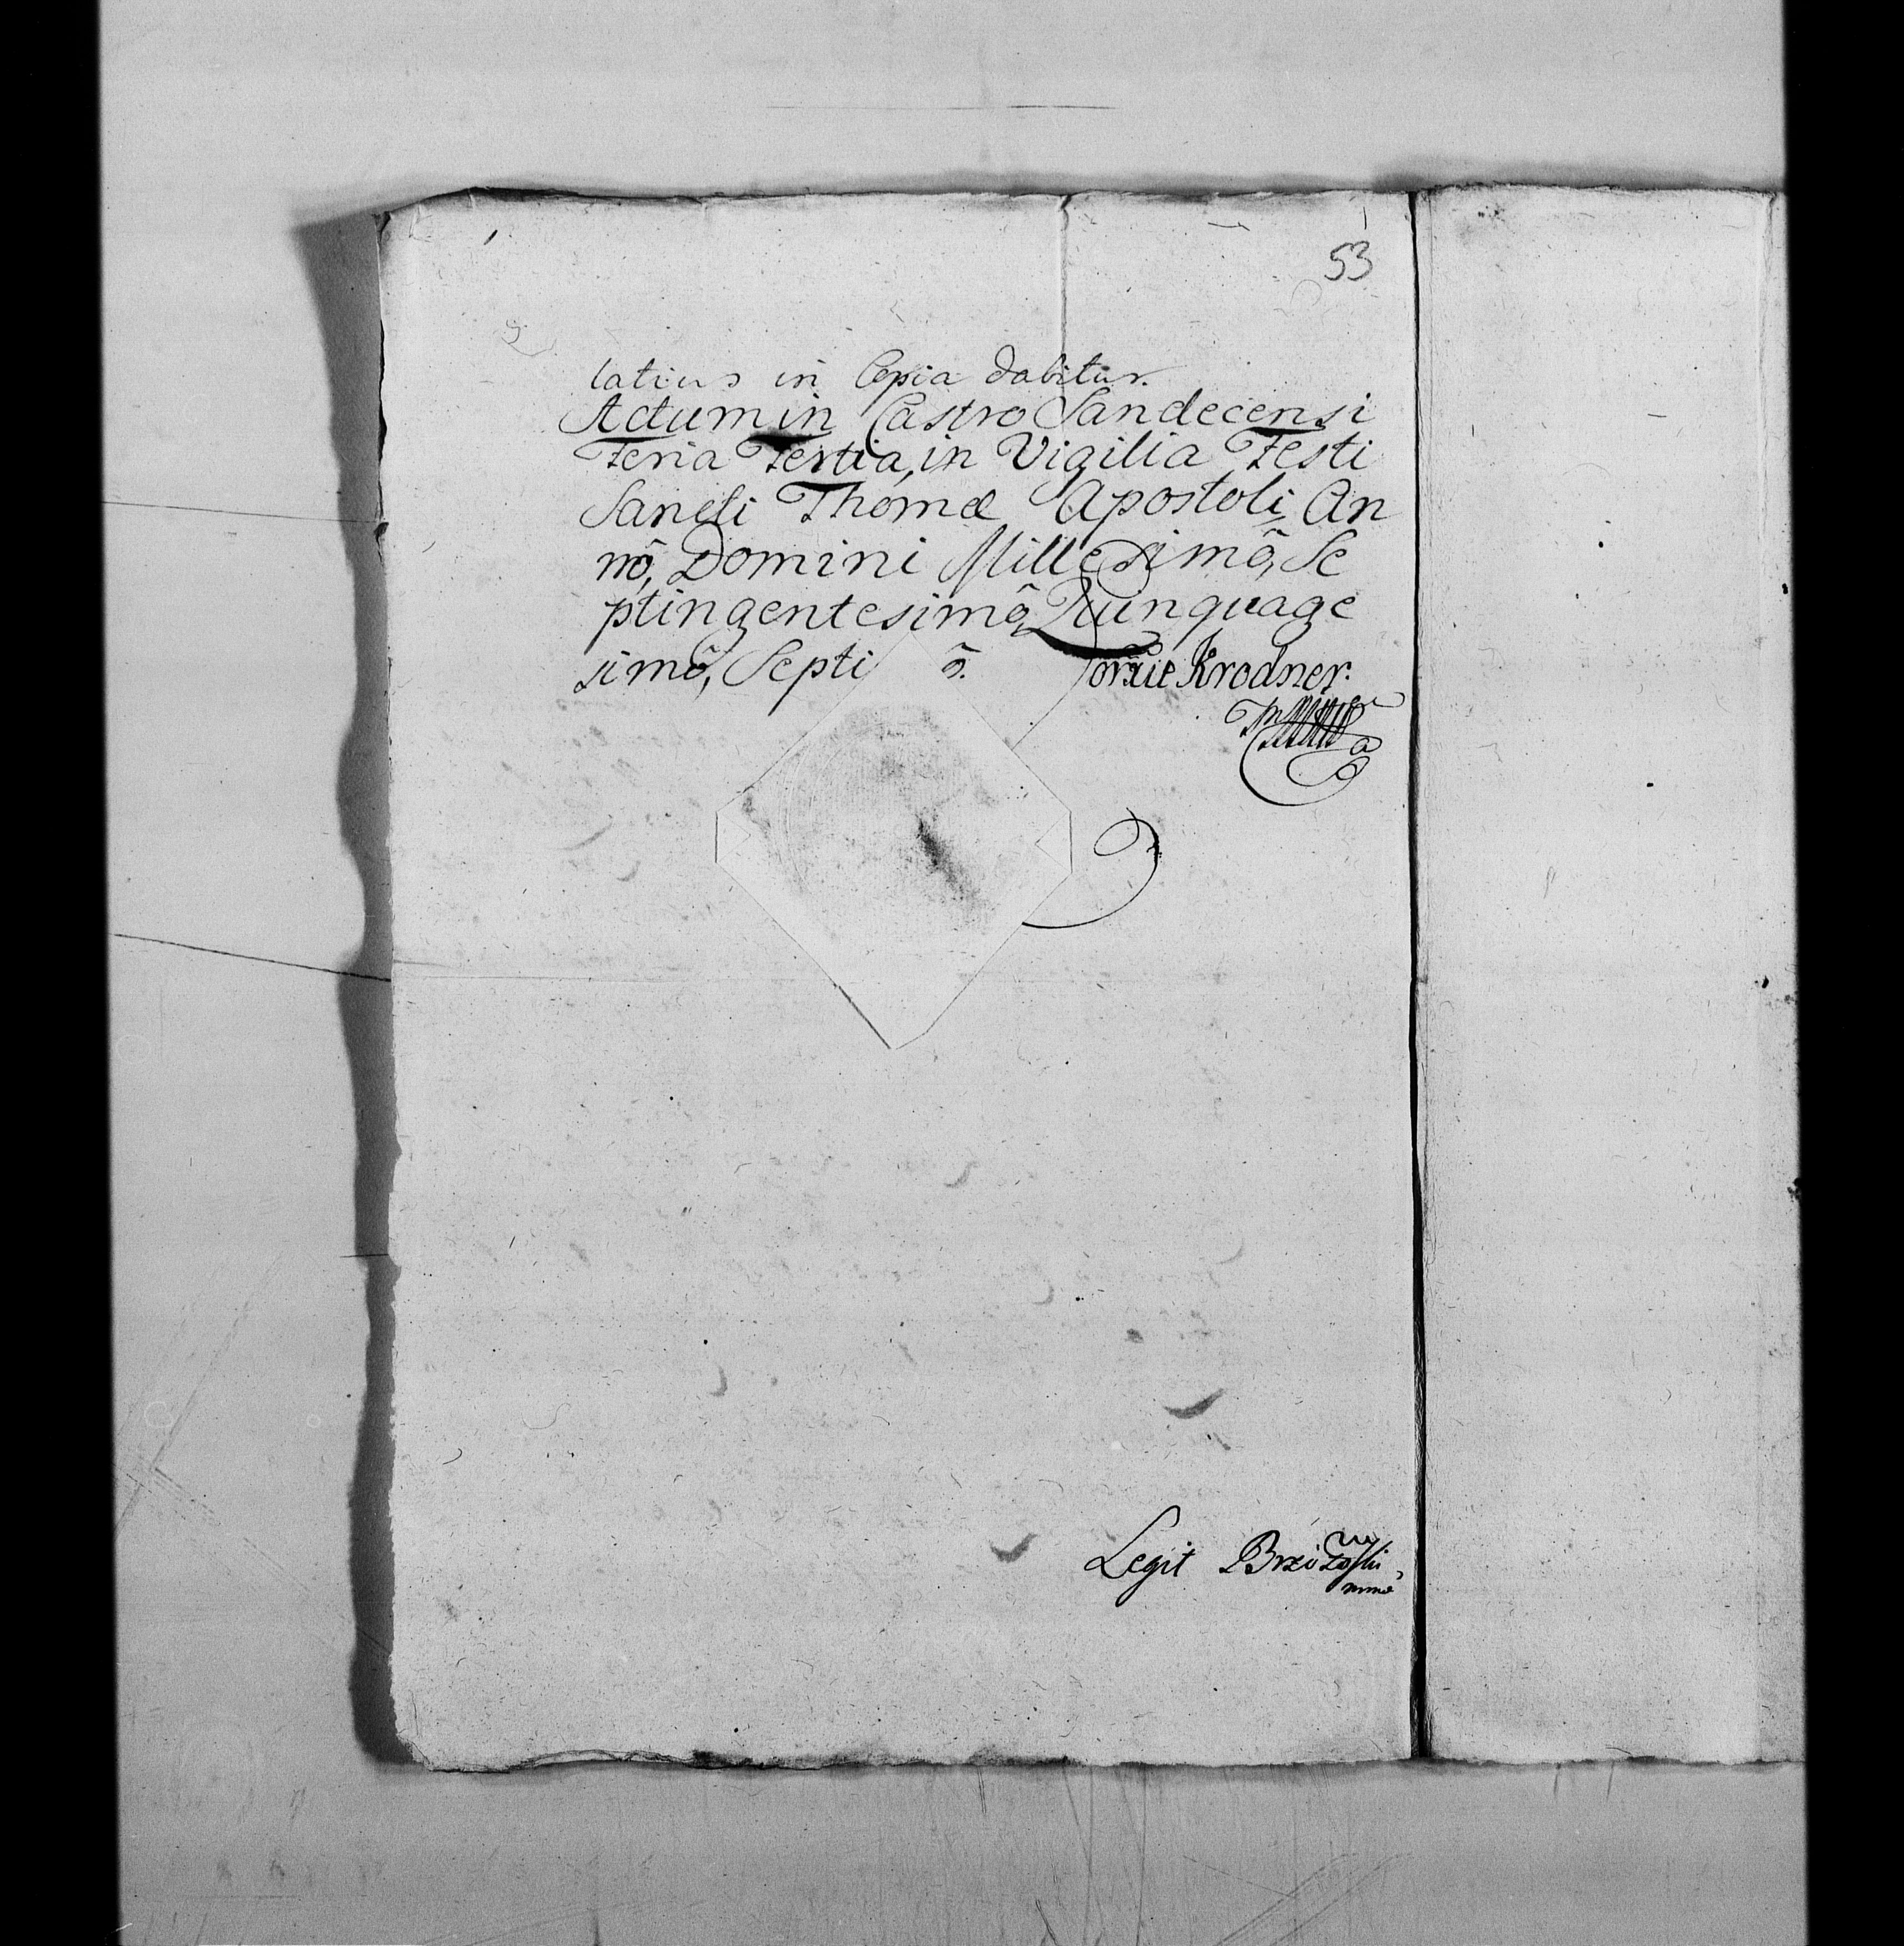 53
latius in Copia dabitur.
Actum in Castro Sandecensi
Feria Tertia, in Vigilia Festi
Sancti Thomæ Apostoli, An
nõ, Domini Millesimõ, Se
ptingentesimõ, Quinquage
simõ, Septi õ. Krodner.
Legit Brzozowski
mme